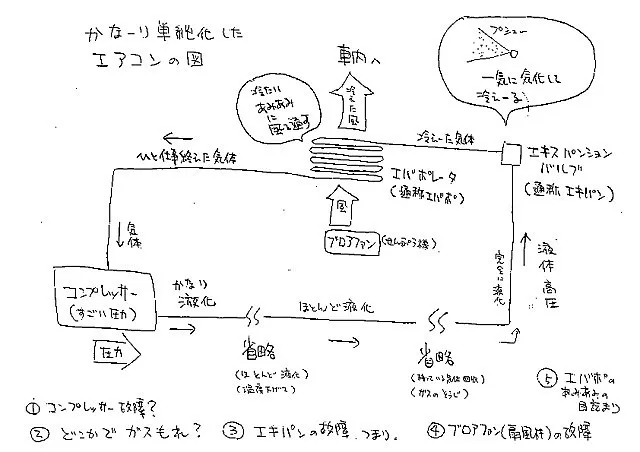 かなーり単純化した
エアコンの図
車内へ
冷えた風
冷たい
あみあみ
に
風を通す
プシュー
一気に気化して
冷えーる
ひと仕事終えた気体
冷えた気体
エキスパンション
バルブ
(通称エキパン)
エバポレータ
(通称エバポ)
風
ブロアファン
(せんぷう機)
気体
液体高圧
完全に液化
コンプレッサー
(すごい圧力)
圧力
かなり
液化
ほとんど液化
省略
(ほとんど液化)
(温度下がって)
省略
(残っている気体回収)
(ガスのそうじ)
① コンプレッサー故障?
② どこかでガスもれ?
③ エキパンの故障、つまり。
④ ブロアファン(扇風機)の故障
⑤ エバポの
あみあみの
目詰まり